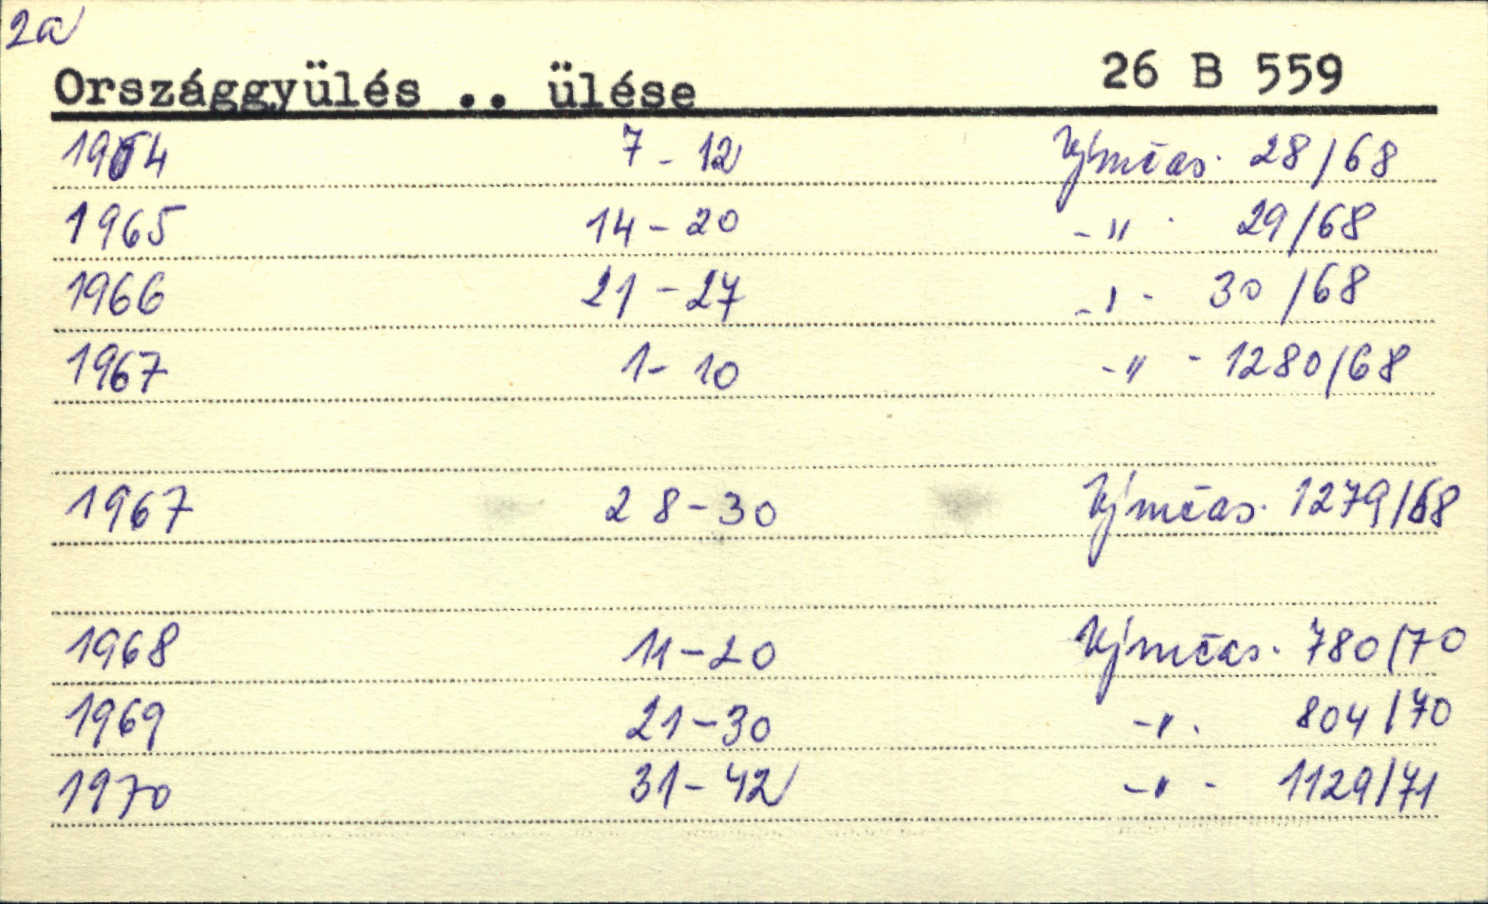 2a
Országgyülés .. ülése 26 B 559
1964 7-12 28/68
1965 14-20 -"- 29/68
1966 21-27 -"- 30/68
1967 1-10 -"- 1280/68
1967 28-30 1279/68
1968 11-20 780/70
1969 21-30 -"- 804/70
1970 31-42 -"- 1129/71